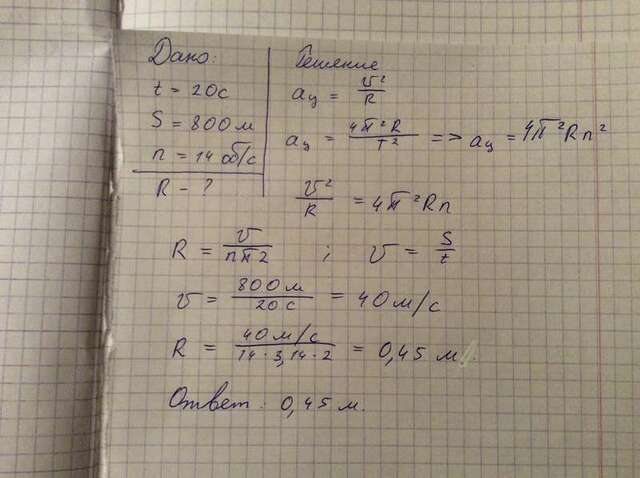 Дано:
t = 20с
S = 800м
n = 14 об/с
R - ?
Решение
aц = v²/R
aц = 4π²R/T² => aц = 4π²Rn²
v²/R = 4π²Rn
R = v/nπ2 ; v = S/t
v = 800м/20с = 40м/с
R = 40м/с/14·3,14·2 = 0,45 м
Ответ: 0,45 м.